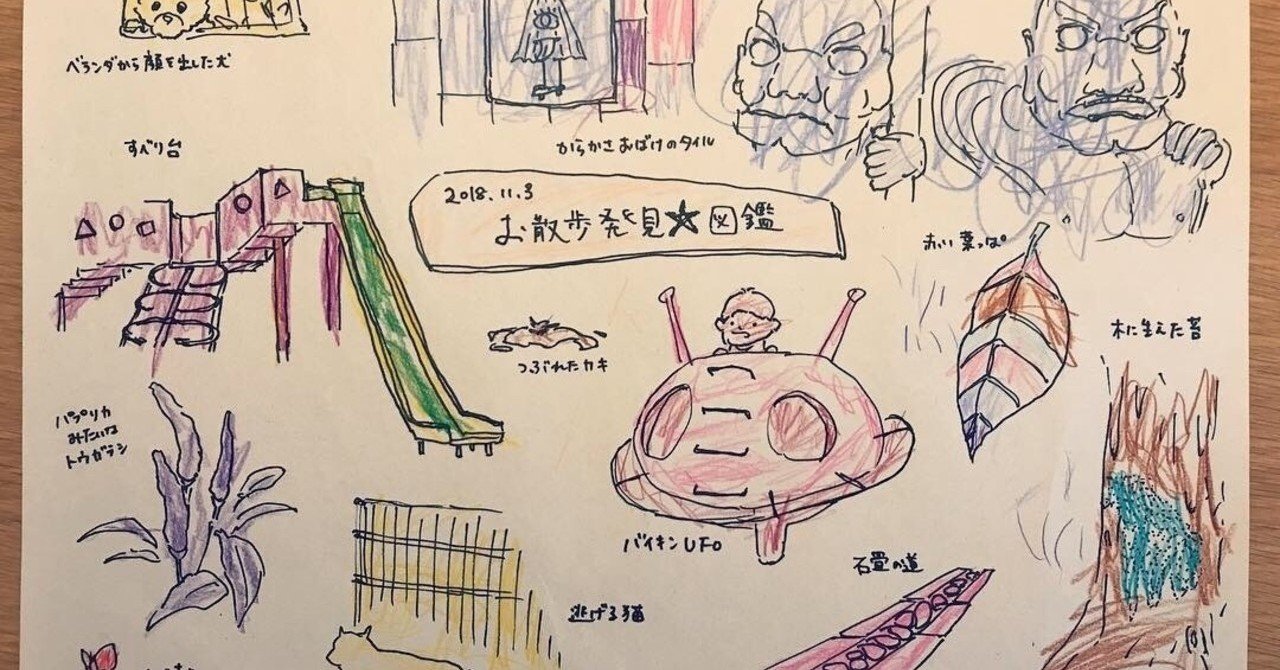 ベランダから顔を出した犬
からかさおばけのタイル
すべり台
2018.11.3
お散歩発見★図鑑
赤い葉っぱ
つぶれたカキ
木に生えた苔
パプリカ
みたいな
トウガラシ
バイキンUFO
石畳の道
逃げる猫